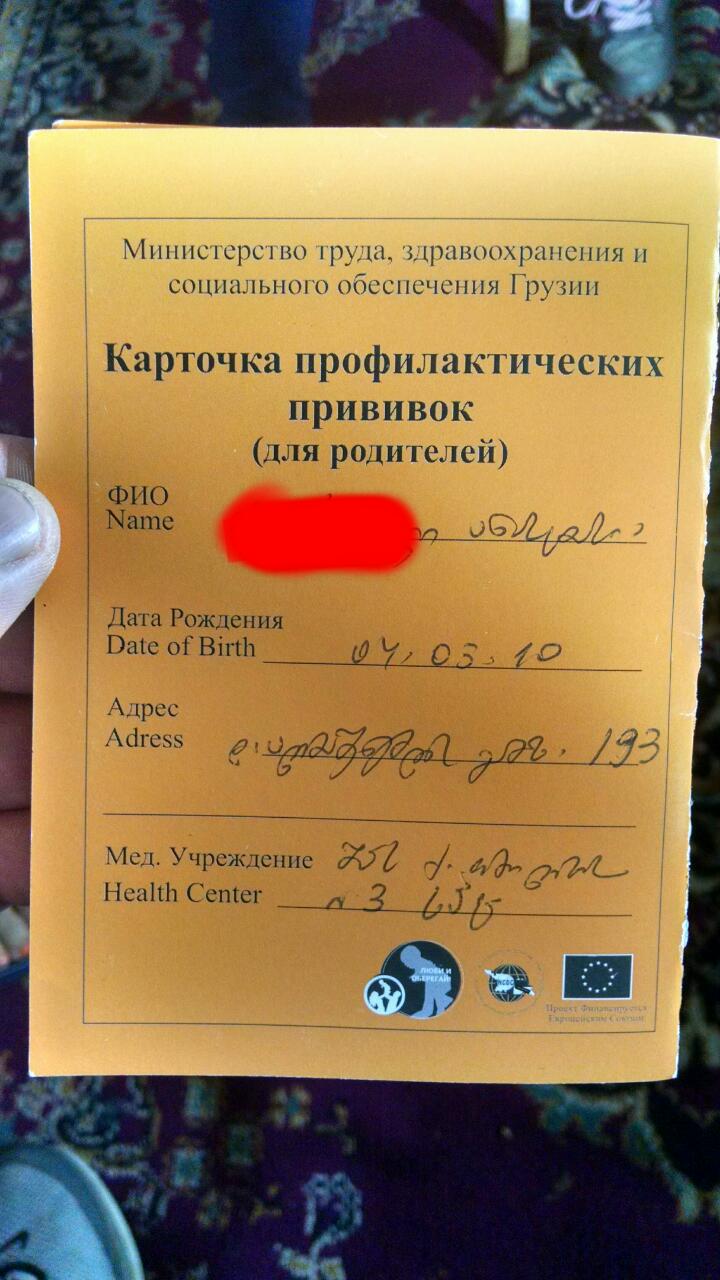 Министерство труда, здравоохранения и
социального обеспечения Грузии
Карточка профилактических
прививок
(для родителей)
ФИО
Name
Дата Рождения
Date of Birth 04.03.10
Адрес
Adress 193
Мед. Учреждение
Health Center №3
ЛЮБИ И
ОБЕРЕГАЙ
NCDC
Проект Финансируется
Европейским Союзом